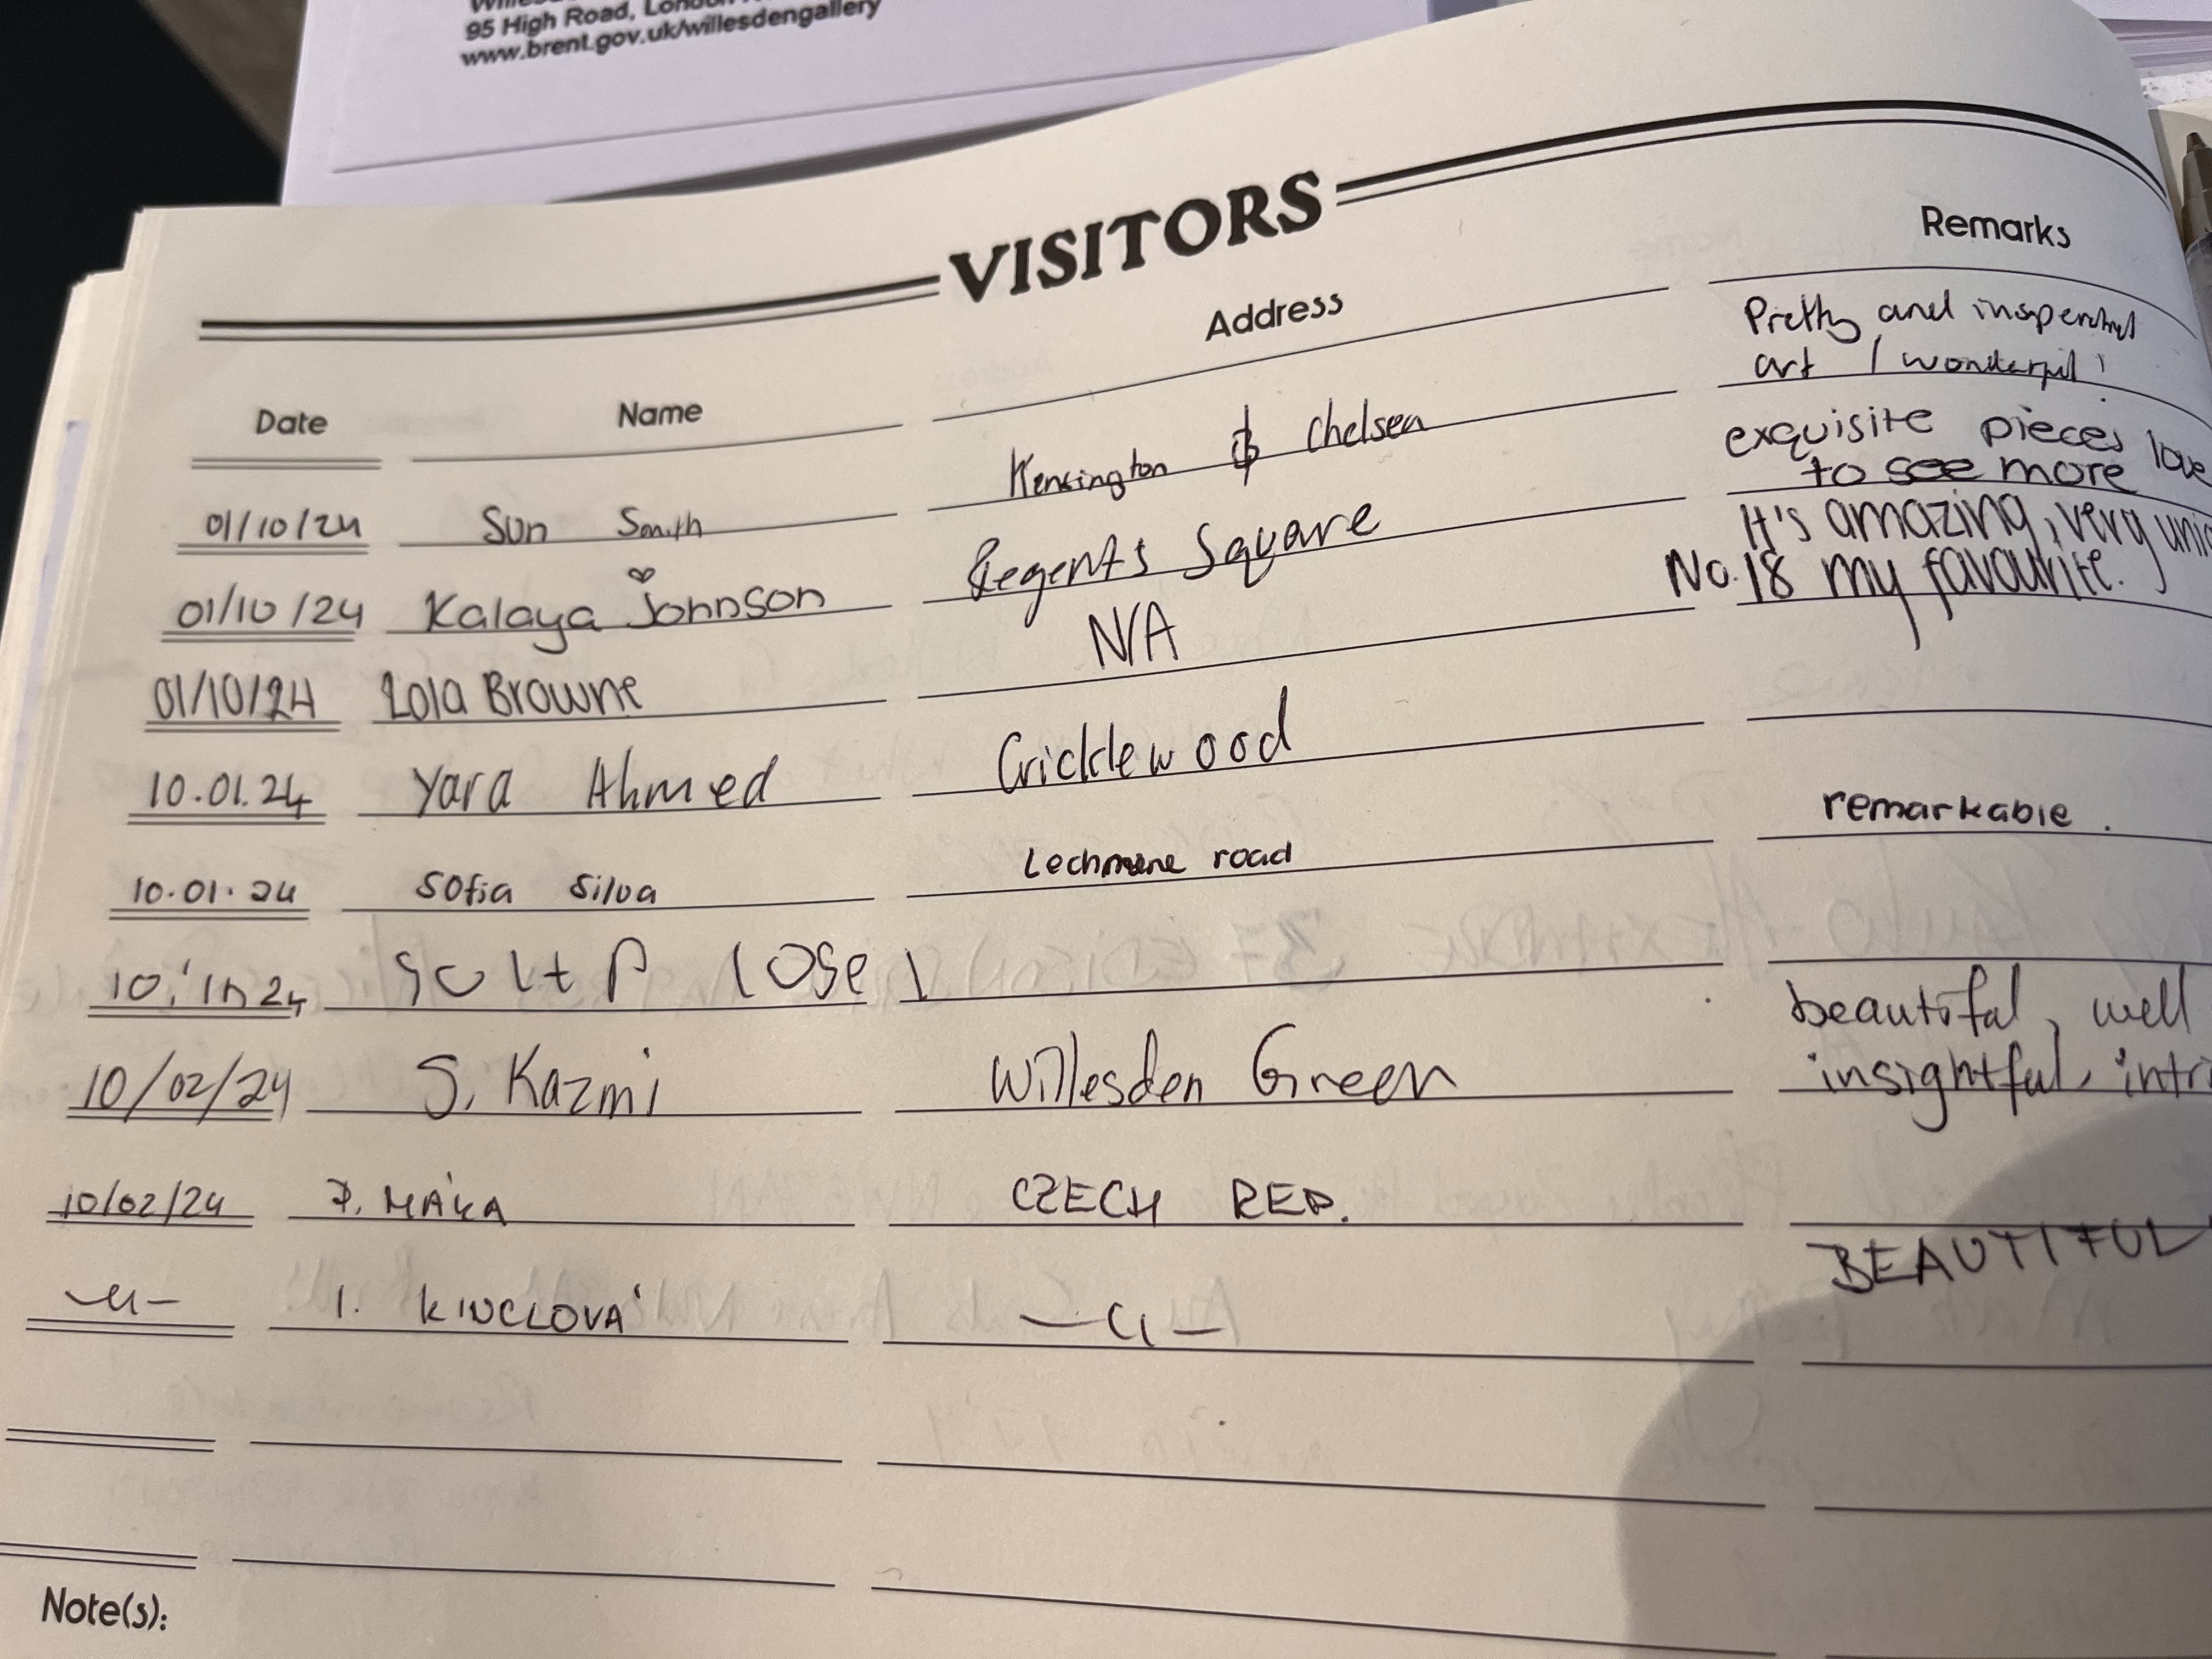 95 High Road, London
www.brent.gov.uk/willesdengallery
VISITORS
Date Name Address Remarks
01/10/24 Sun Smith Kensington & Chelsea Pretty and
art / wonderful
01/10/24 Kalaya Johnson Regents Square exquisite pieces love
to see more
01/10/24 Lola Browne N/A It's amazing, very
No.18 my favourite.
10.01.24 Yara Ahmed Cricklewood
10.01.24 Sofia Silva Lechmere road remarkable.
10/02/24 S. Kazmi Willesden Green beautiful, well
insightful,
10/02/24 CZECH REP.
-"- I. KINCLOVÁ -"- BEAUTIFUL
Note(s):